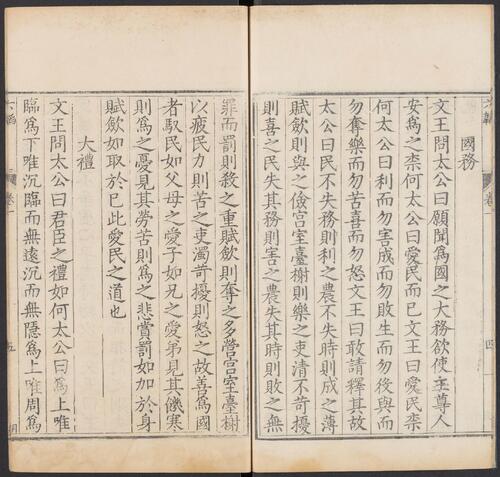 國務
文王問太公曰願聞爲國之大務欲使主尊人
安爲之柰何太公曰愛民而已文王曰愛民柰
何太公曰利而勿害成而勿敗生而勿殺與而
勿奪樂而勿苦喜而勿怒文王曰敢請釋其故
太公曰民不失務則利之農不失時則成之薄
賦歛則與之儉宮室臺榭則樂之吏清不苛擾
則喜之民失其務則害之農失其時則敗之無
卷一
四
罪而罰則殺之重賦歛則奪之多營宮室臺榭
以疲民力則苦之吏濁苛擾則怒之故善爲國
者馭民如父母之愛子如兄之愛弟見其饑寒
則爲之憂見其勞苦則爲之悲賞罰如加於身
賦歛如取於已此愛民之道也
大禮
文王問太公曰君臣之禮如何太公曰爲上唯
臨爲下唯沉臨而無遠沉而無隱爲上唯周爲
六韜
卷一
五